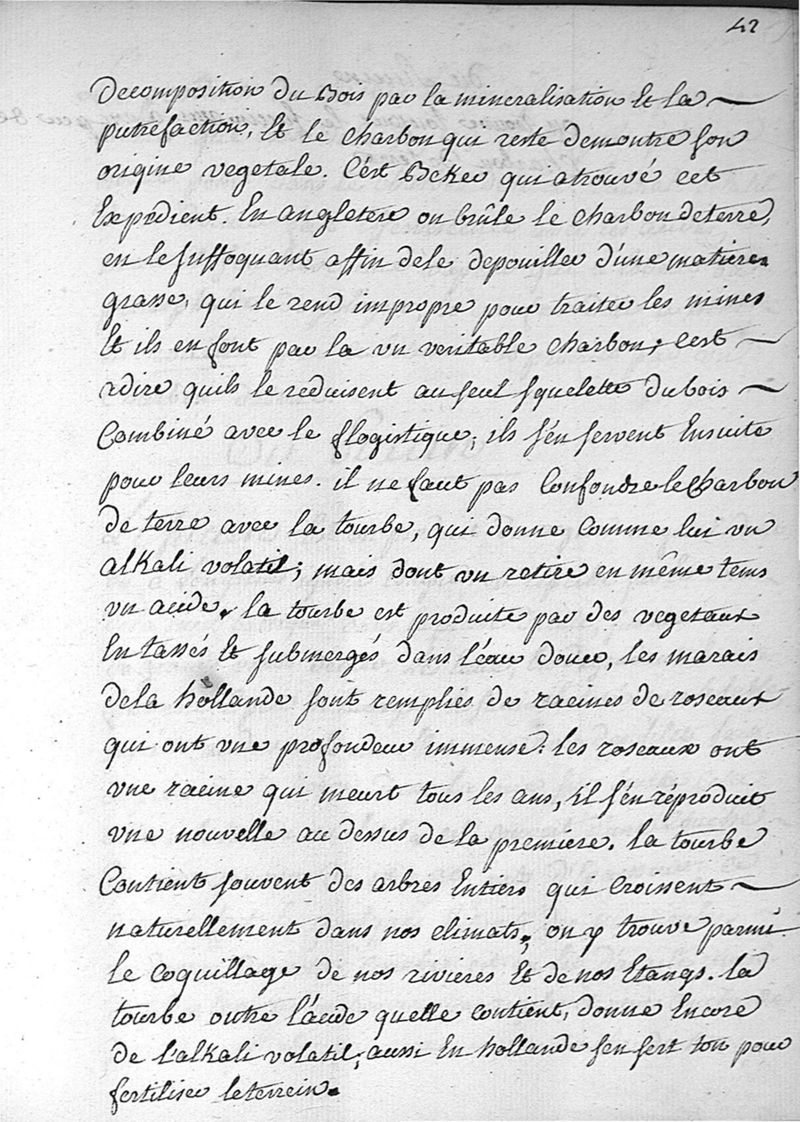 42
Decomposition du Bois par la mineralisation Et la
putrefaction, Et le charbon qui reste demontre son
origine vegetale. C'est Beker qui a trouvé cet
Expedient. En angletere on brûle le charbon de terre,
en le suffoquant affin de le depouiller d'une matiere
grasse, qui le rend impropre pour traiter les mines
Et ils en font par la un veritable charbon; c'est
adire quils le reduisent au seul squelette du bois
Combiné avec le flogistique; ils s'en servent Ensuite
pour leurs mines. il ne faut pas Confondre le Charbon
de terre avec la tourbe, qui donne comme lui un
alkali volatil; mais dont un retire en même tems
un acide. la tourbe est produite par des vegetaux
Entassés Et submergés dans l'eau douce, les marais
de la hollande sont remplies de racines de roseaux
qui ont une profondeur immense: les roseaux ont
une racine qui meurt tous les ans, il s'en réproduit
une nouvelle au dessus de la premiere. la tourbe
Contient souvent des arbres Entiers qui Croissent
naturellement dans nos climats, on y trouve parmi
le coquillage de nos rivieres Et de nos Etangs. la
tourbe outre l'acide quelle contient, donne Encore
de l'alkali volatil; aussi En hollande s'en sert ton pour
fertiliser le terrein.